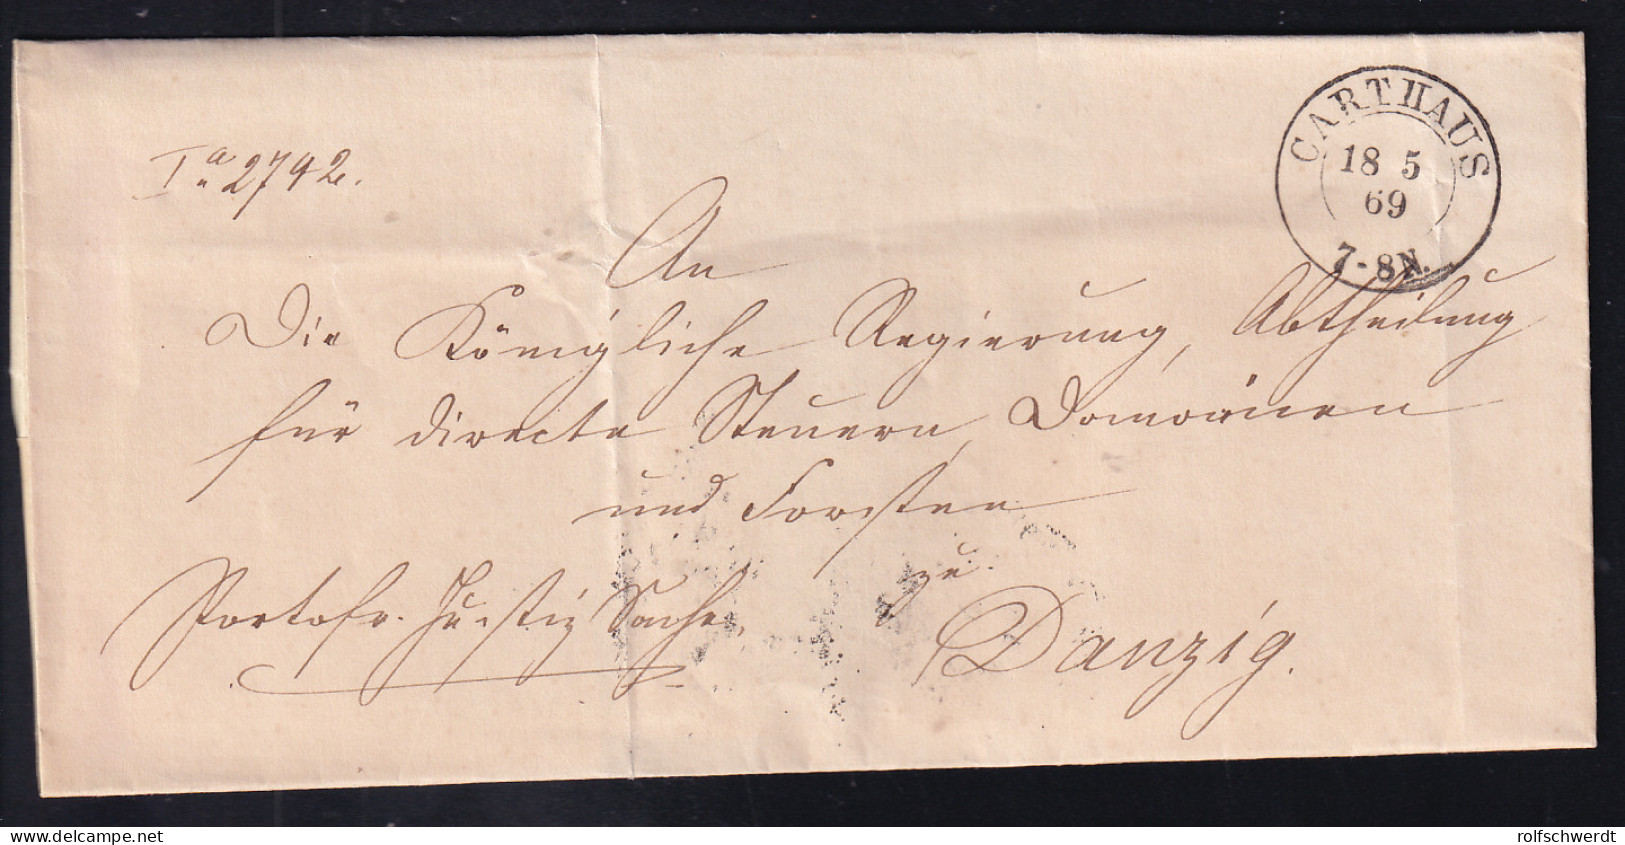 CARTHAUS
18 5
69
7-8N.
Ia 2792.
An
Die Königliche Regierung, Abtheilung
für directe Steuern, Domainen
und Forsten
zu
Portofr. Justiz Sache.
Danzig.
www.delcampe.net
rolfschwerdt